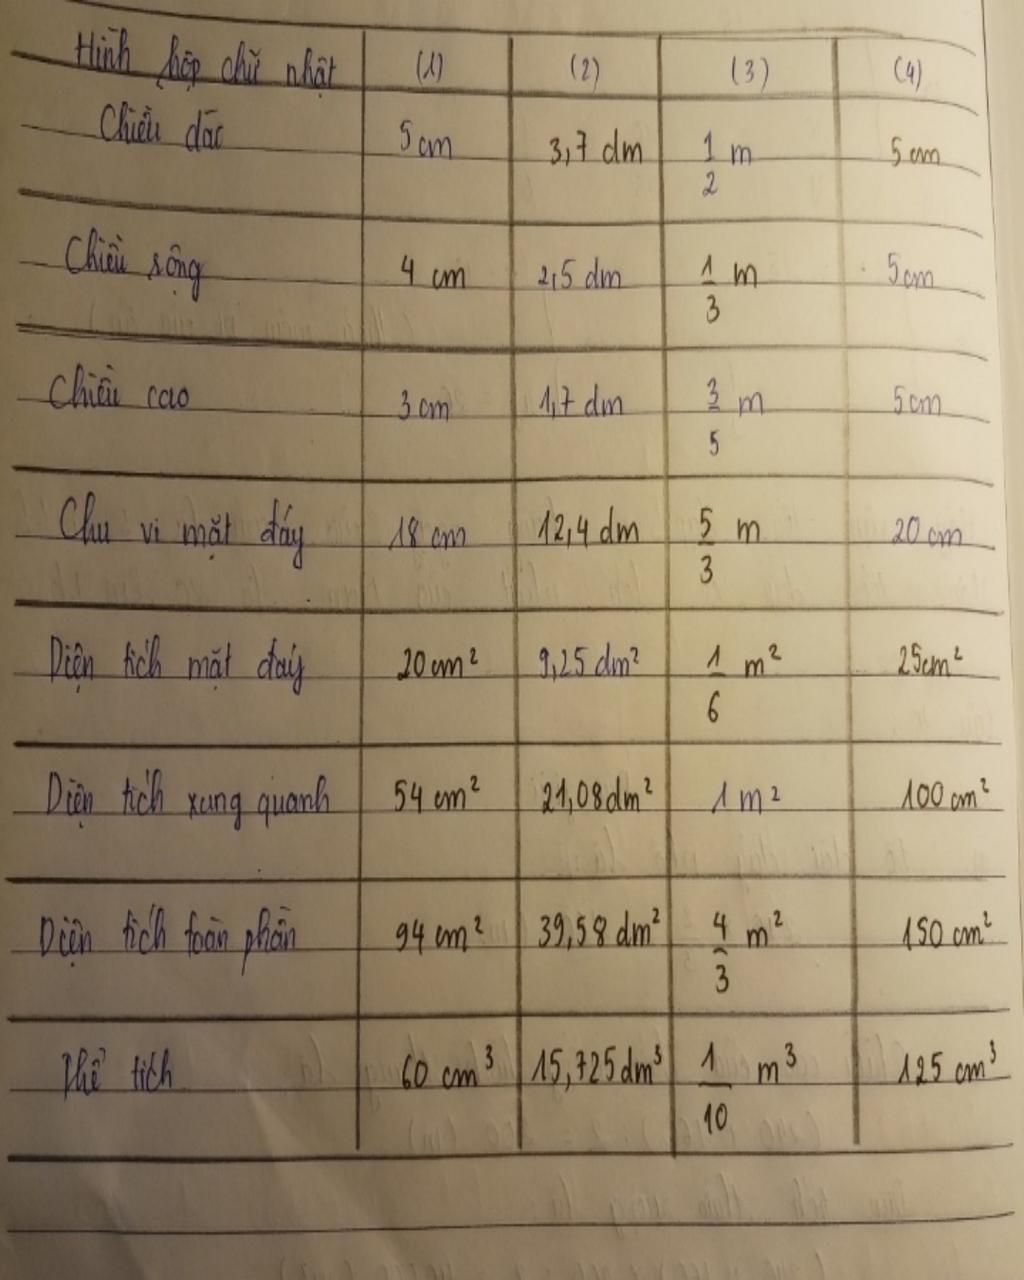 Hình hộp chữ nhật (1) (2) (3) (4)
Chiều dài 5 cm 3,7 dm 1/2 m 5 cm
Chiều rộng 4 cm 2,5 dm 1/3 m 5 cm
Chiều cao 3 cm 1,7 dm 3/5 m 5 cm
Chu vi mặt đáy 18 cm 12,4 dm 5/3 m 20 cm
Diện tích mặt đáy 20 cm² 9,25 dm² 1/6 m² 25 cm²
Diện tích xung quanh 54 cm² 21,08 dm² 1 m² 100 cm²
Diện tích toàn phần 94 cm² 39,58 dm² 4/3 m² 150 cm²
Thể tích 60 cm³ 15,725 dm³ 1/10 m³ 125 cm³